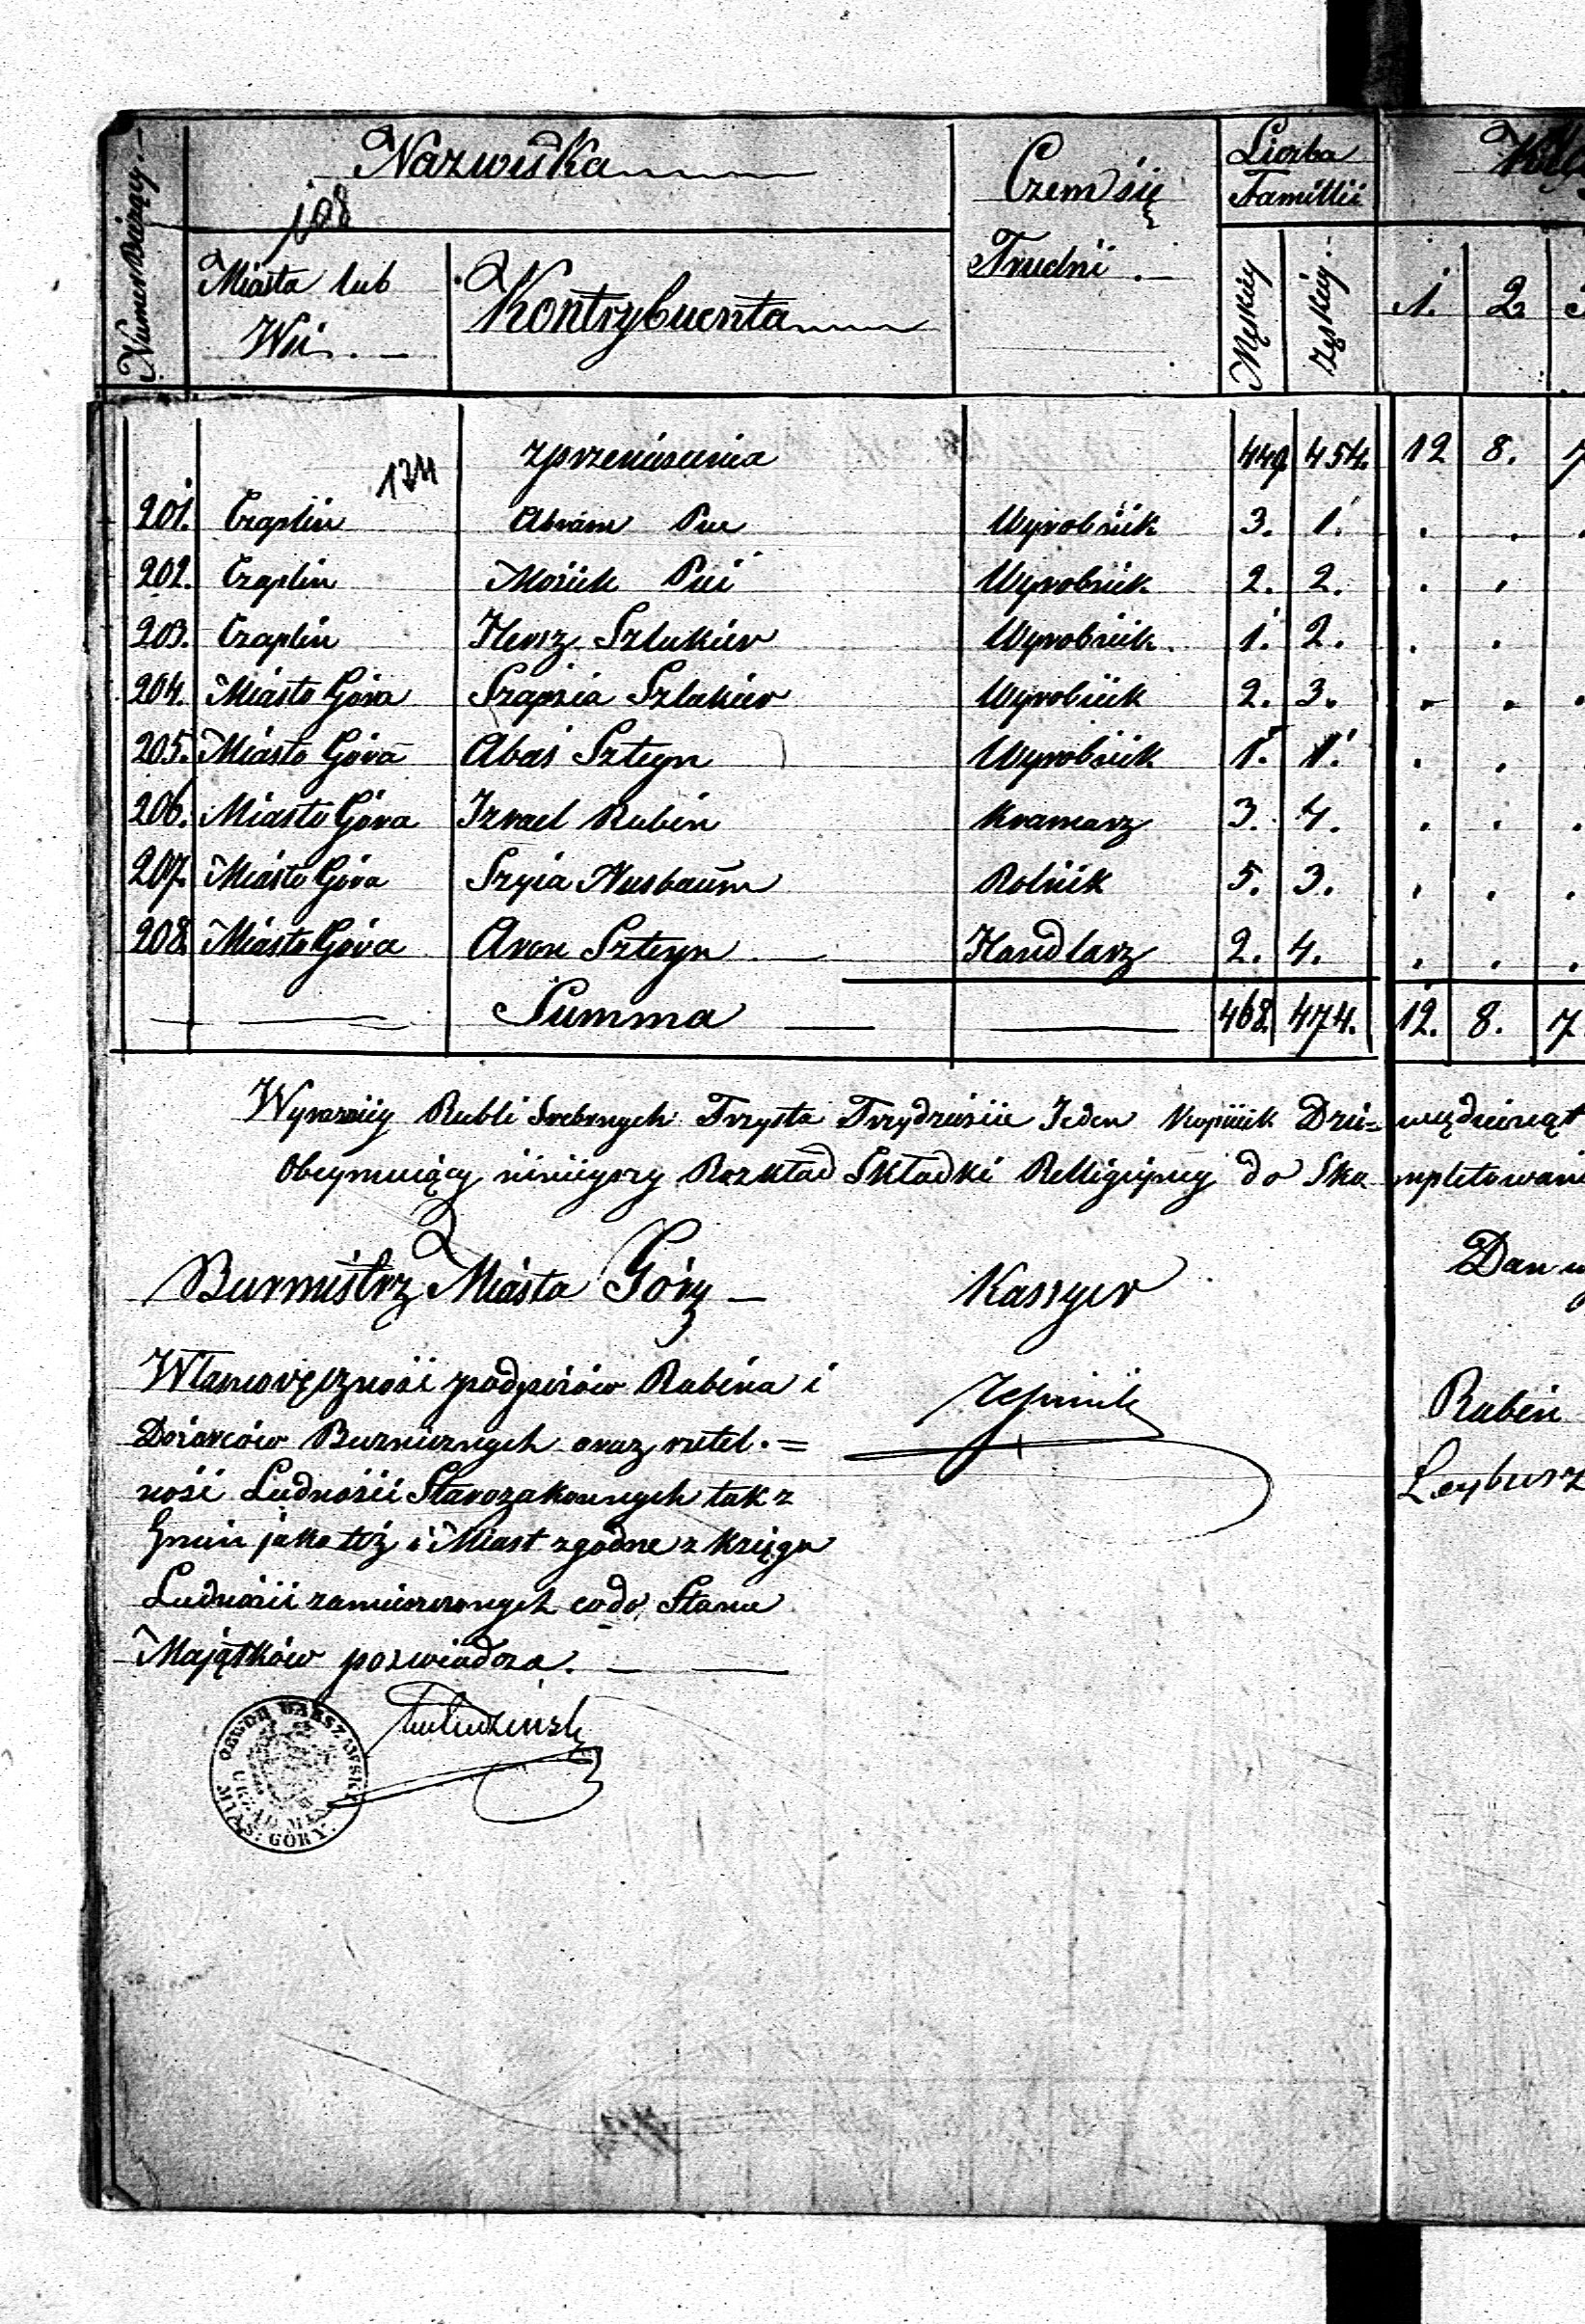 Numer Bieżący.
Nazwiska
108
Miasta lub Wsi.
Kontrybuenta
Czem się Trudni.
Liczba Familli
Męskiéy
Żęskiéy
1. 2.
z przeniesienia 449 454. 12 8. 7
124
201. Czaplin Abram Wyrobnik 3. 1.
202. Czaplin Mosiek Wyrobnik 2. 2.
203. Czaplin Hersz Wyrobnik 1. 2.
204. Miasto Góra Szapsia Wyrobnik 2. 3.
205. Miasto Góra Abas Szteyn Wyrobnik 1. 1.
206. Miasto Góra Izrael Rubin Kramarz 3. 4.
207. Miasto Góra Szyia Nusbaum Rolnik 5. 3.
208. Miasto Góra Aron Szteyn Handlarz 2. 4.
Summa 468. 474. 12. 8. 7
Wyrazniey Rubli Srebrnych Trzysta Trzydzieście Jeden Kopiiek Dzie=więdziesiąt
Obeymuiący ninieyszy Rozkład Składki Relligiyney do Skompletowani
Burmistrz Miasta Góry Kassyer Dan w
Własnoręczność podpisów Rabina i
Rabin
Dozorców Bużniczných oraz rzetel=
Leyburz
ność Ludności Starozakonnych tak z
Gmin jako też i Miast zgodne z księgą
Ludności zamieszczonych codo Stanu
Majątków poswiadcza.
OBWÓD WARSZAWSKI
URZĄD
MIAS: GÓRY.